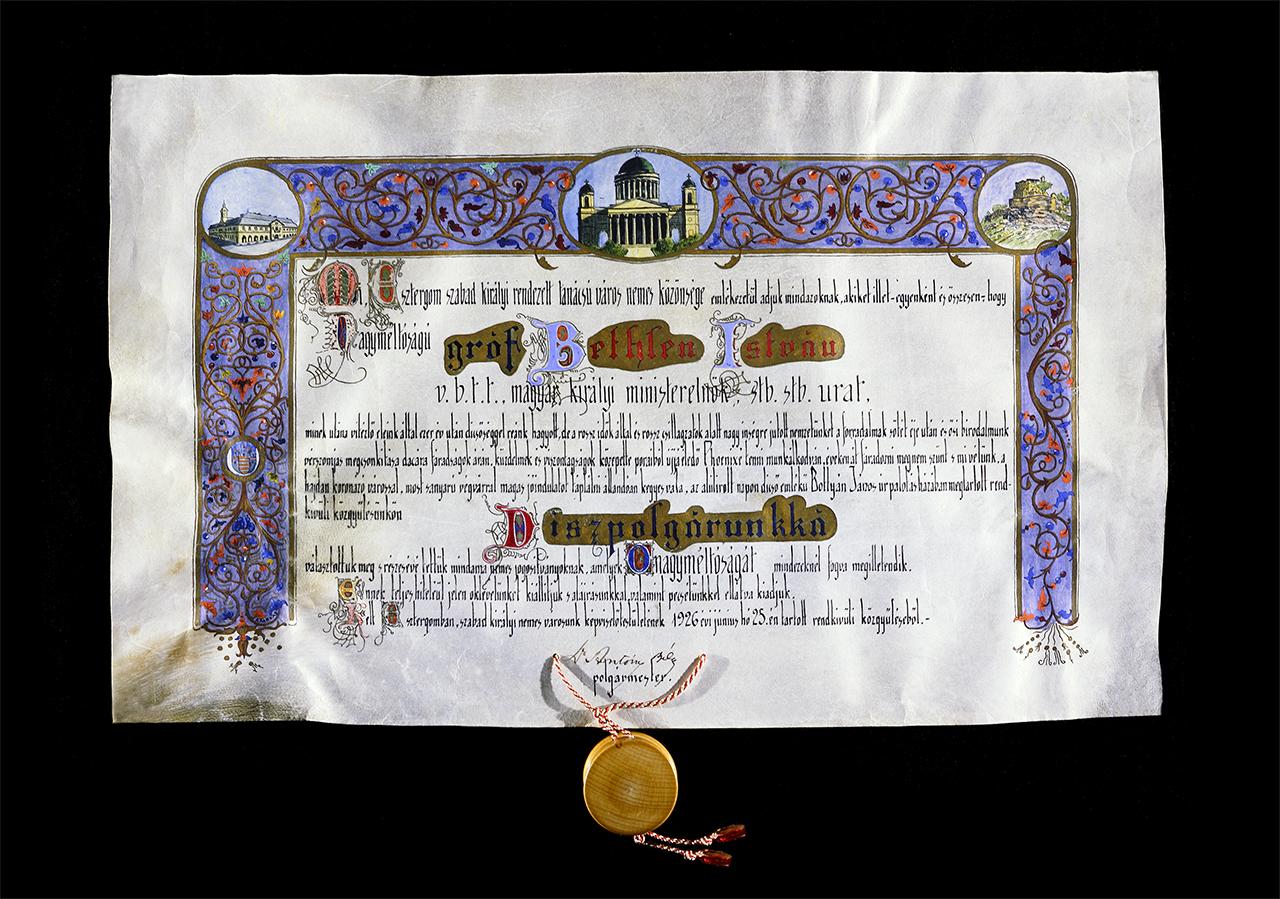 Mi, Esztergom szabad királyi rendezett tanácsú város nemes közönsége emlékezetül adjuk mindazoknak, akiket illet - egyenként és összesen - hogy
Nagyméltóságú gróf Bethlen István
v. b. t. t., magyar királyi ministerelnök, stb. stb. urat,
minek utána vitézlő eleink által ezer év után dicsőséggel reánk hagyott, de a rossz idők által és rossz csillagzatok alatt nagy inségre jutott nemzetünket a forradalmak sötét éje után és ősi birodalmunk
vérszomjas megcsonkítása dacára fáradságok árán, küzdelmek és viszontagságok közepette poraiból újjáéledő Phoenixé tenni munkálkodván, éveken át fáradozni megnem szünt s mi velünk, a
hajdan koronázó várossal, most sanyarú végvárral magas jóindulatot táplálni állandóan kegyes vala, az alulírott napon dicső emlékű Bottyán János úr palotás házában megtartott rend-
kívüli közgyűlésünkön
Díszpolgárunkká
választottuk meg s részesévé tettük mindama nemes jogosítványoknak, amelyek Őnagyméltóságát mindezeknél fogva megilletendik.
Ennek teljes hiteléül jelen oklevelünket kiállítjuk s aláírásunkkal, valamint pecsétünkkel ellátva kiadjuk.
Kelt Esztergomban, szabad királyi nemes városunk képviselőtestületének 1926 évi június hó 25.én tartott rendkívüli közgyűléséből.-
Dr Antóny Béla
polgármester.